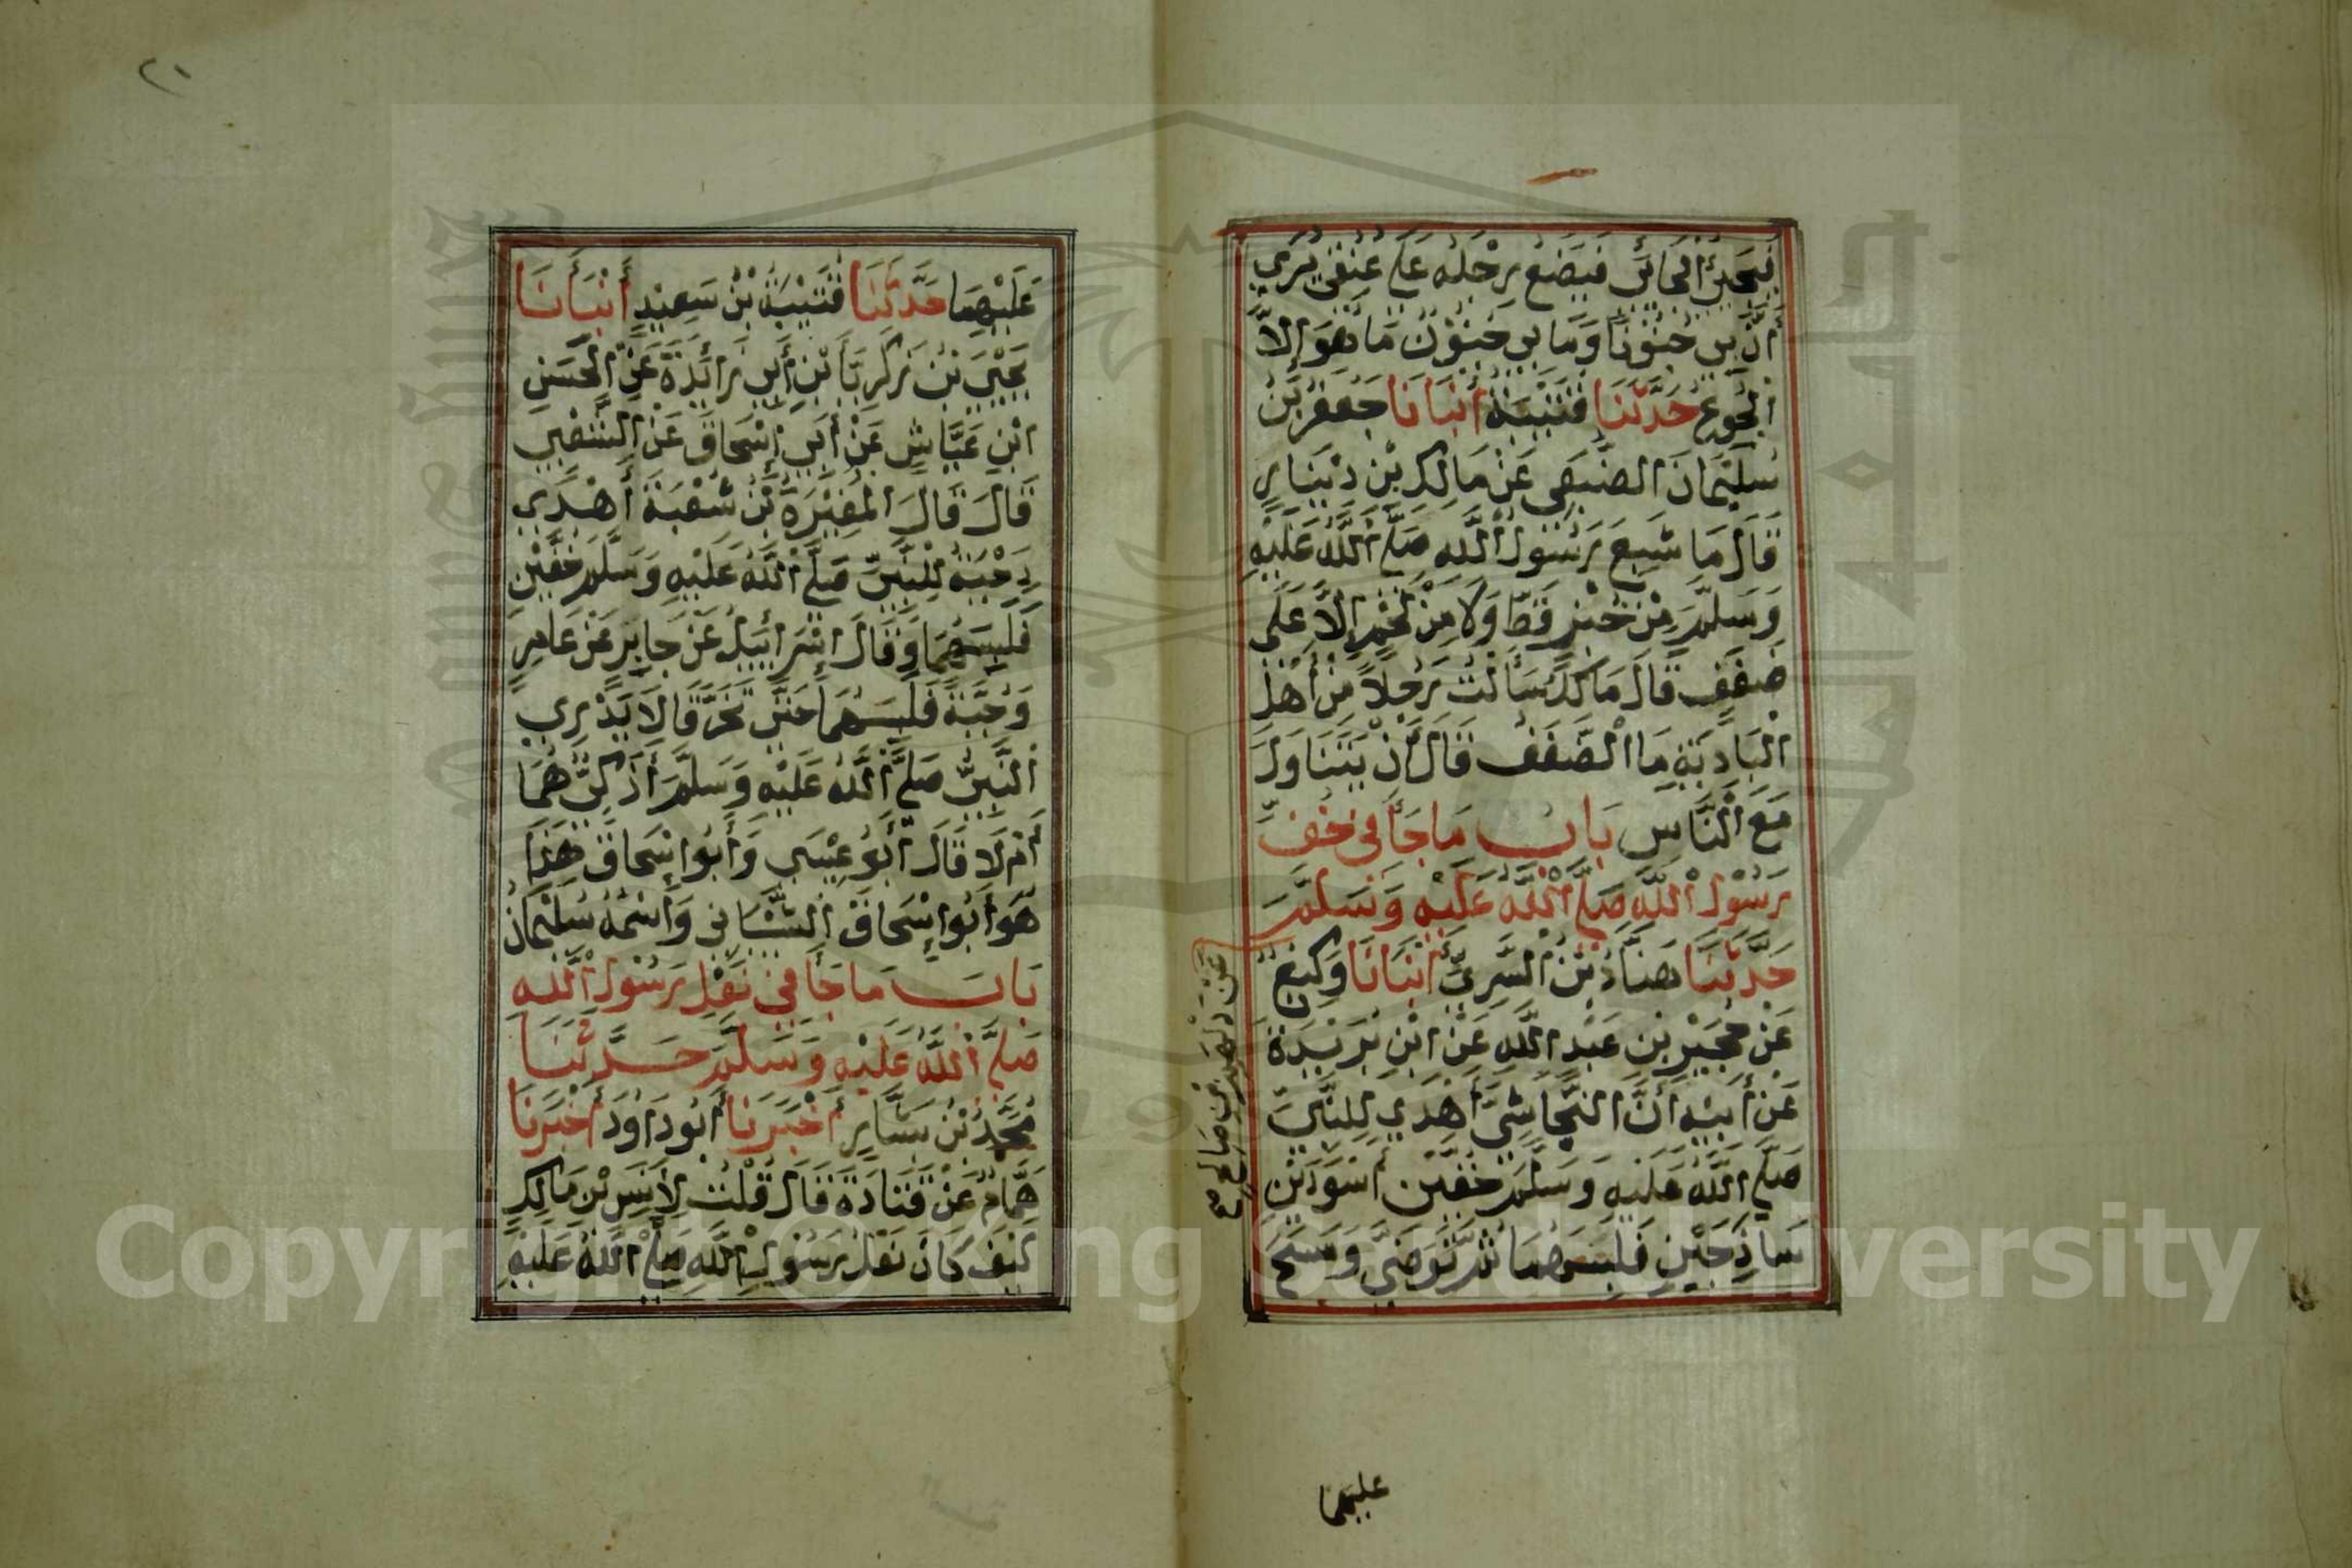 فَيَجِئُ الْجَائِي فَيَضَعُ رِجْلَهُ عَلَى عُنُقِي يَرَي
أَنَّ بِي جُنُوْنًا وَمَا بِي جُنُوْنٌ مَا هُوَ إِلاَّ
الْجُوعُ حَدَّثَنَا قُتَيْبَةُ أَنْبَانَا جَعْفَرُ بْنُ
سُلَيْمَانَ الضُّبَعِي عَنْ مَالِكِ بْنِ دِيْنَارٍ
قَالَ مَا شَبِعَ رَسُوْلُ اللَّهِ صَلَّى اللَّهُ عَلَيْهِ
وَسَلَّمَ مِنْ خُبْزٍ قَطُّ وَلَا مِنْ لَحْمٍ إِلاَّ عَلَى
ضَفَفٍ قَالَ مَالِكٌ سَأَلْتُ رَجُلاً مِنْ أَهْلِ
الْبَادِيَةِ مَا الْضَّفَفُ قَالَ أَنْ يَتَنَاوَلَ
مَعَ الْنَّاسِ بَابُ مَا جَأَ فِي خُفِّ
رَسُوْلِ اللَّهِ صَلَّى اللَّهُ عَلَيْهِ وَسَلَّمَ
حَدَّثَنَا هَنَّادُ بْنُ السَّرِيِّ أَنْبَانَا وَكِيْعٌ
عَنْ دَلْهَمِ بْنِ صَالِحٍ صح
عَنْ حُجَيْرِ بْنِ عَبْدِ اللَّهِ عَنْ ابْنِ بُرَيْدَةَ
عَنْ أَبِيْهِ أَنَّ النَّجَاشِيَّ أَهْدَي لِلنَّبِيِّ
صَلَّى اللَّهُ عَلَيْهِ وَسَلَّمَ خُفَّيْنِ أَسْوَدَيْنِ
سَاذِجَيْنِ فَلَبِسَهُمَا ثُمَّ تَوَضَّئَ وَمَسَحَ
عليهما
٢١
عَلَيْهِمَا حَدَّثَنَا قُتَيْبَةُ بْنُ سَعِيْدٍ أَنْبَأَنَا
يَحْيَيَ بْنُ زَكَرِيَّا بْنِ أَبِي زَائِدَةَ عَنِ الْحَسَنِ
ابْنِ عَيَّاشٍ عَنْ أَبِي إِسْحَاقَ عَنْ الشَّعْبِي
قَالَ قَالَ الْمُغِيْرَةُ بْنُ شُعْبَةَ أَهْدَي
دِحْيَةُ لِلنَّبِيِّ صَلَّى اللَّهُ عَلَيْهِ وَسَلَّمَ خُفَّيْنِ
فَلَبِسَهُمَا وَقَالَ إِسْرَائِيْلُ عَنْ جَابِرٍ عَنْ عَامِرٍ
وَجُبَّةً فَلَبِسَهُمَا حَتَّى تَخَرَّقَا لَا يَدْرِي
النَّبِيُّ صَلَّى اللَّهُ عَلَيْهِ وَسَلَّمَ أَذَكِيٌّ هُمَا
أَمْ لَا قَالَ أَبُو عِيْسَي وَأَبُوا إِسْحَاقَ هَذَا
هُوَ أَبُوا إِسْحَاقَ الشَّيْبَانِي وَأَسْمُهُ سُلَيْمَانُ
بَابُ مَا جَأَ فِي نَعْلِ رَسُوْلِ اللَّهِ
صَلَّى اللَّهُ عَلَيْهِ وَسَلَّمَ حَدَّثَنَا
مُحَمَّدُ بْنُ بَشَّارٍ أَخْبَرَنَا أَبُو دَاوُدَ أَخْبَرَنَا
هَمَّامٌ عَنْ قَتَادَةَ قَالَ قُلْتُ لِأَنَسِ بْنِ مَالِكٍ
كَيْفَ كَانَ نَعْلُ رَسُوْلِ اللَّهِ صَلَّى اللَّهُ عَلَيْهِ
Copyright © King Saud University